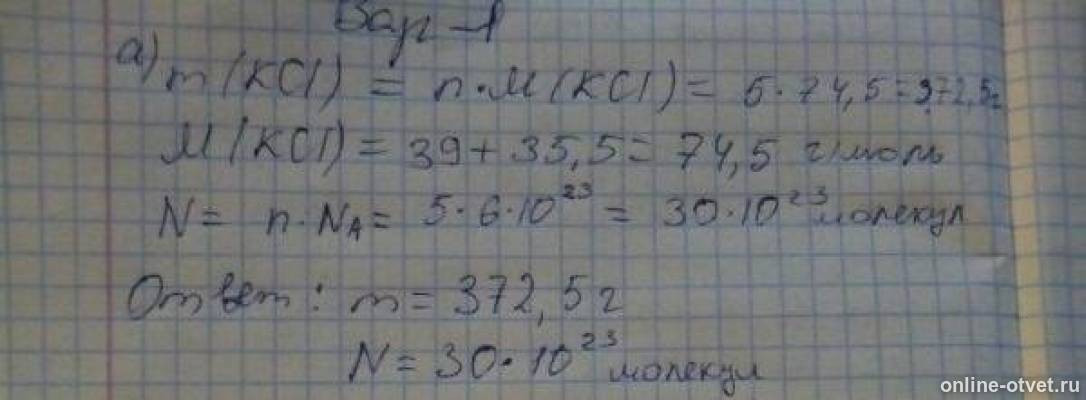 Вар-1
а) m(KCl) = n·M(KCl) = 5·74,5 = 372,5г
M(KCl) = 39 + 35,5 = 74,5 г/моль
N = n·Nₐ = 5·6·10²³ = 30·10²³ молекул
Ответ: m = 372,5 г
N = 30·10²³ молекул
online-otvet.ru